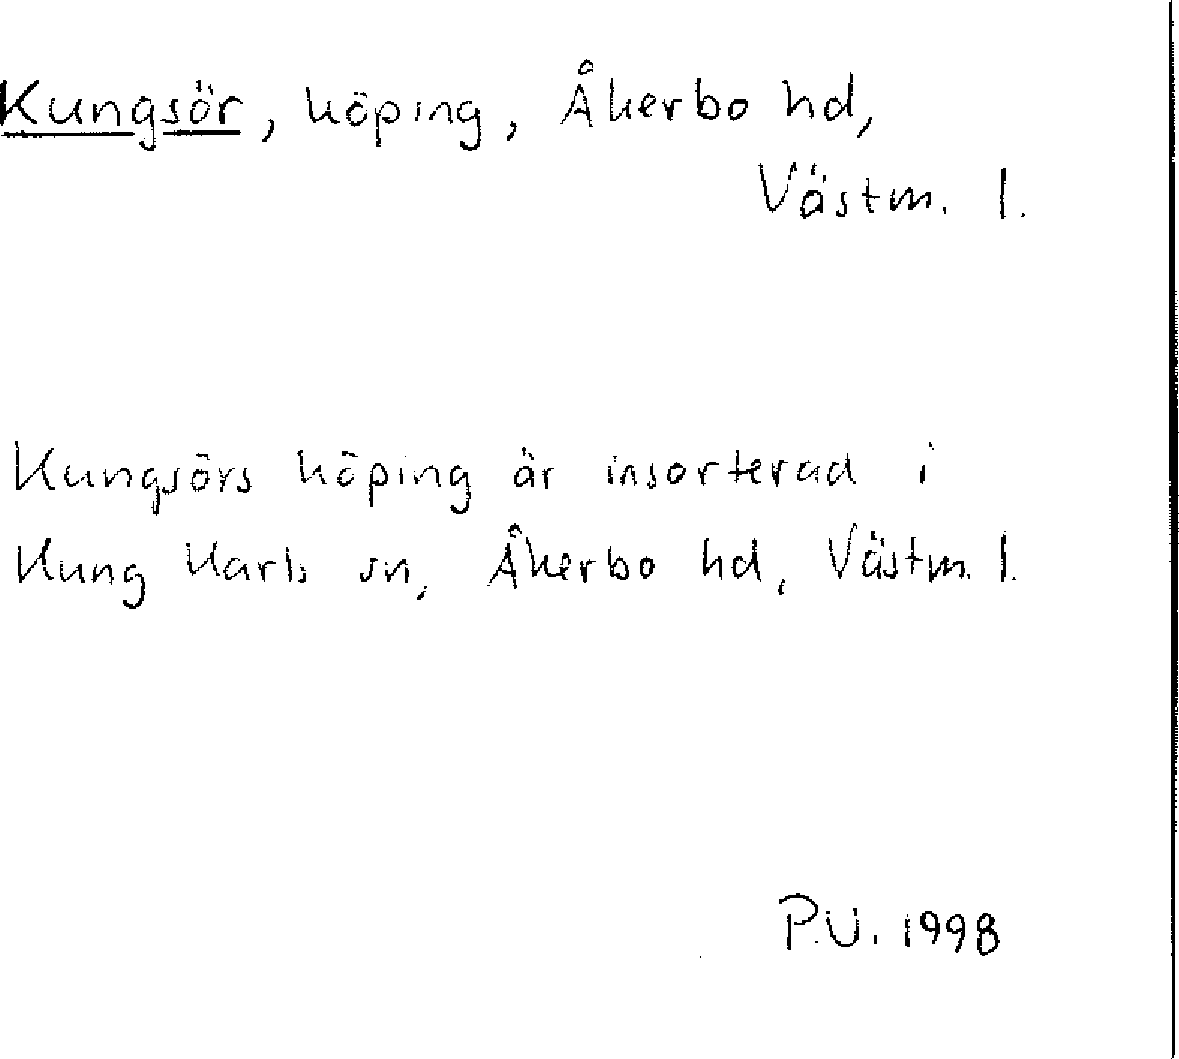 Kungsör, köping, Åkerbo hd,
Västm. l.
Kungsörs köping är insorterad i
Kung Karls sn, Åkerbo hd, Västm. l.
P.U. 1998